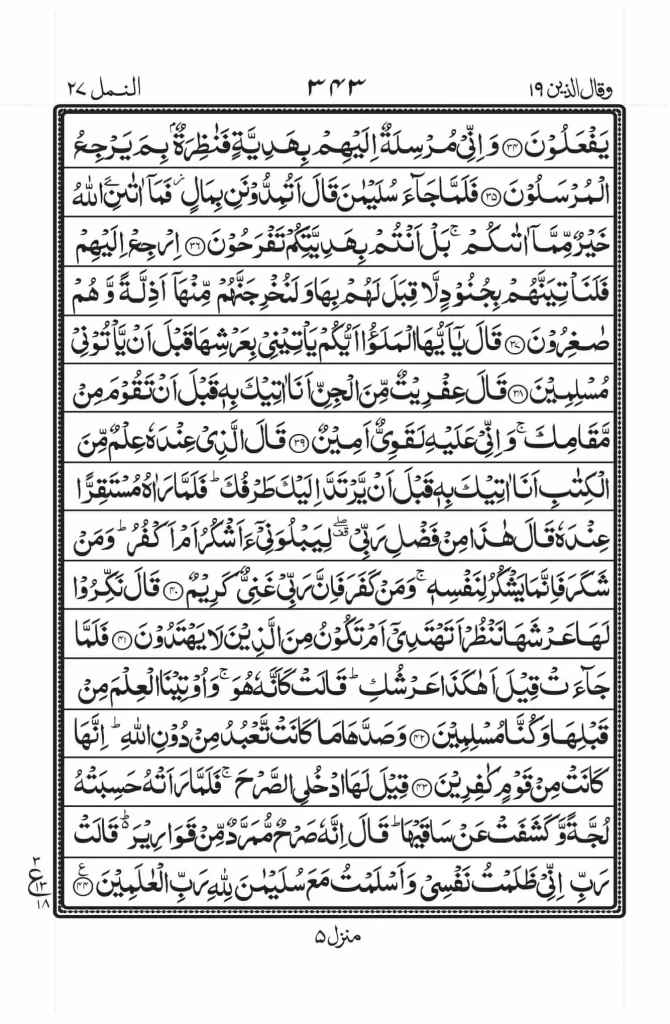 وقال الذین ۱۹ ۳۴۳ النمل ۲۷
یَفْعَلُوْنَ ﴿۳۴﴾ وَ اِنِّیْ مُرْسِلَةٌ اِلَیْهِمْ بِهَدِیَّةٍ فَنٰظِرَةٌۢ بِمَ یَرْجِعُ
الْمُرْسَلُوْنَ ﴿۳۵﴾ فَلَمَّا جَآءَ سُلَیْمٰنَ قَالَ اَتُمِدُّوْنَنِ بِمَالٍ ز فَمَاۤ اٰتٰىنِۦَ اللّٰهُ
خَیْرٌ مِّمَّاۤ اٰتٰىكُمْ ۚ بَلْ اَنْتُمْ بِهَدِیَّتِكُمْ تَفْرَحُوْنَ ﴿۳۶﴾ اِرْجِعْ اِلَیْهِمْ
فَلَنَاْتِیَنَّهُمْ بِجُنُوْدٍ لَّا قِبَلَ لَهُمْ بِهَا وَ لَنُخْرِجَنَّهُمْ مِّنْهَاۤ اَذِلَّةً وَّ هُمْ
صٰغِرُوْنَ ﴿۳۷﴾ قَالَ یٰۤاَیُّهَا الْمَلَؤُا اَیُّكُمْ یَاْتِیْنِیْ بِعَرْشِهَا قَبْلَ اَنْ یَّاْتُوْنِیْ
مُسْلِمِیْنَ ﴿۳۸﴾ قَالَ عِفْرِیْتٌ مِّنَ الْجِنِّ اَنَا اٰتِیْكَ بِهٖ قَبْلَ اَنْ تَقُوْمَ مِنْ
مَّقَامِكَ ۚ وَ اِنِّیْ عَلَیْهِ لَقَوِیٌّ اَمِیْنٌ ﴿۳۹﴾ قَالَ الَّذِیْ عِنْدَهٗ عِلْمٌ مِّنَ
الْكِتٰبِ اَنَا اٰتِیْكَ بِهٖ قَبْلَ اَنْ یَّرْتَدَّ اِلَیْكَ طَرْفُكَ ؕ فَلَمَّا رَاٰهُ مُسْتَقِرًّا
عِنْدَهٗ قَالَ هٰذَا مِنْ فَضْلِ رَبِّیْ ۖ قف لِیَبْلُوَنِیْۤ ءَاَشْكُرُ اَمْ اَكْفُرُ ؕ وَ مَنْ
شَكَرَ فَاِنَّمَا یَشْكُرُ لِنَفْسِهٖ ۚ وَ مَنْ كَفَرَ فَاِنَّ رَبِّیْ غَنِیٌّ كَرِیْمٌ ﴿۴۰﴾ قَالَ نَكِّرُوْا
لَهَا عَرْشَهَا نَنْظُرْ اَتَهْتَدِیْۤ اَمْ تَكُوْنُ مِنَ الَّذِیْنَ لَا یَهْتَدُوْنَ ﴿۴۱﴾ فَلَمَّا
جَآءَتْ قِیْلَ اَهٰكَذَا عَرْشُكِ ؕ قَالَتْ كَاَنَّهٗ هُوَ ۚ وَ اُوْتِیْنَا الْعِلْمَ مِنْ
قَبْلِهَا وَ كُنَّا مُسْلِمِیْنَ ﴿۴۲﴾ وَ صَدَّهَا مَا كَانَتْ تَّعْبُدُ مِنْ دُوْنِ اللّٰهِ ؕ اِنَّهَا
كَانَتْ مِنْ قَوْمٍ كٰفِرِیْنَ ﴿۴۳﴾ قِیْلَ لَهَا ادْخُلِی الصَّرْحَ ۚ فَلَمَّا رَاَتْهُ حَسِبَتْهُ
لُجَّةً وَّ كَشَفَتْ عَنْ سَاقَیْهَا ؕ قَالَ اِنَّهٗ صَرْحٌ مُّمَرَّدٌ مِّنْ قَوَارِیْرَ ؕ قَالَتْ
رَبِّ اِنِّیْ ظَلَمْتُ نَفْسِیْ وَ اَسْلَمْتُ مَعَ سُلَیْمٰنَ لِلّٰهِ رَبِّ الْعٰلَمِیْنَ ع ﴿۴۴﴾
۳
ع
۱۳
۱۸
منزل ۵